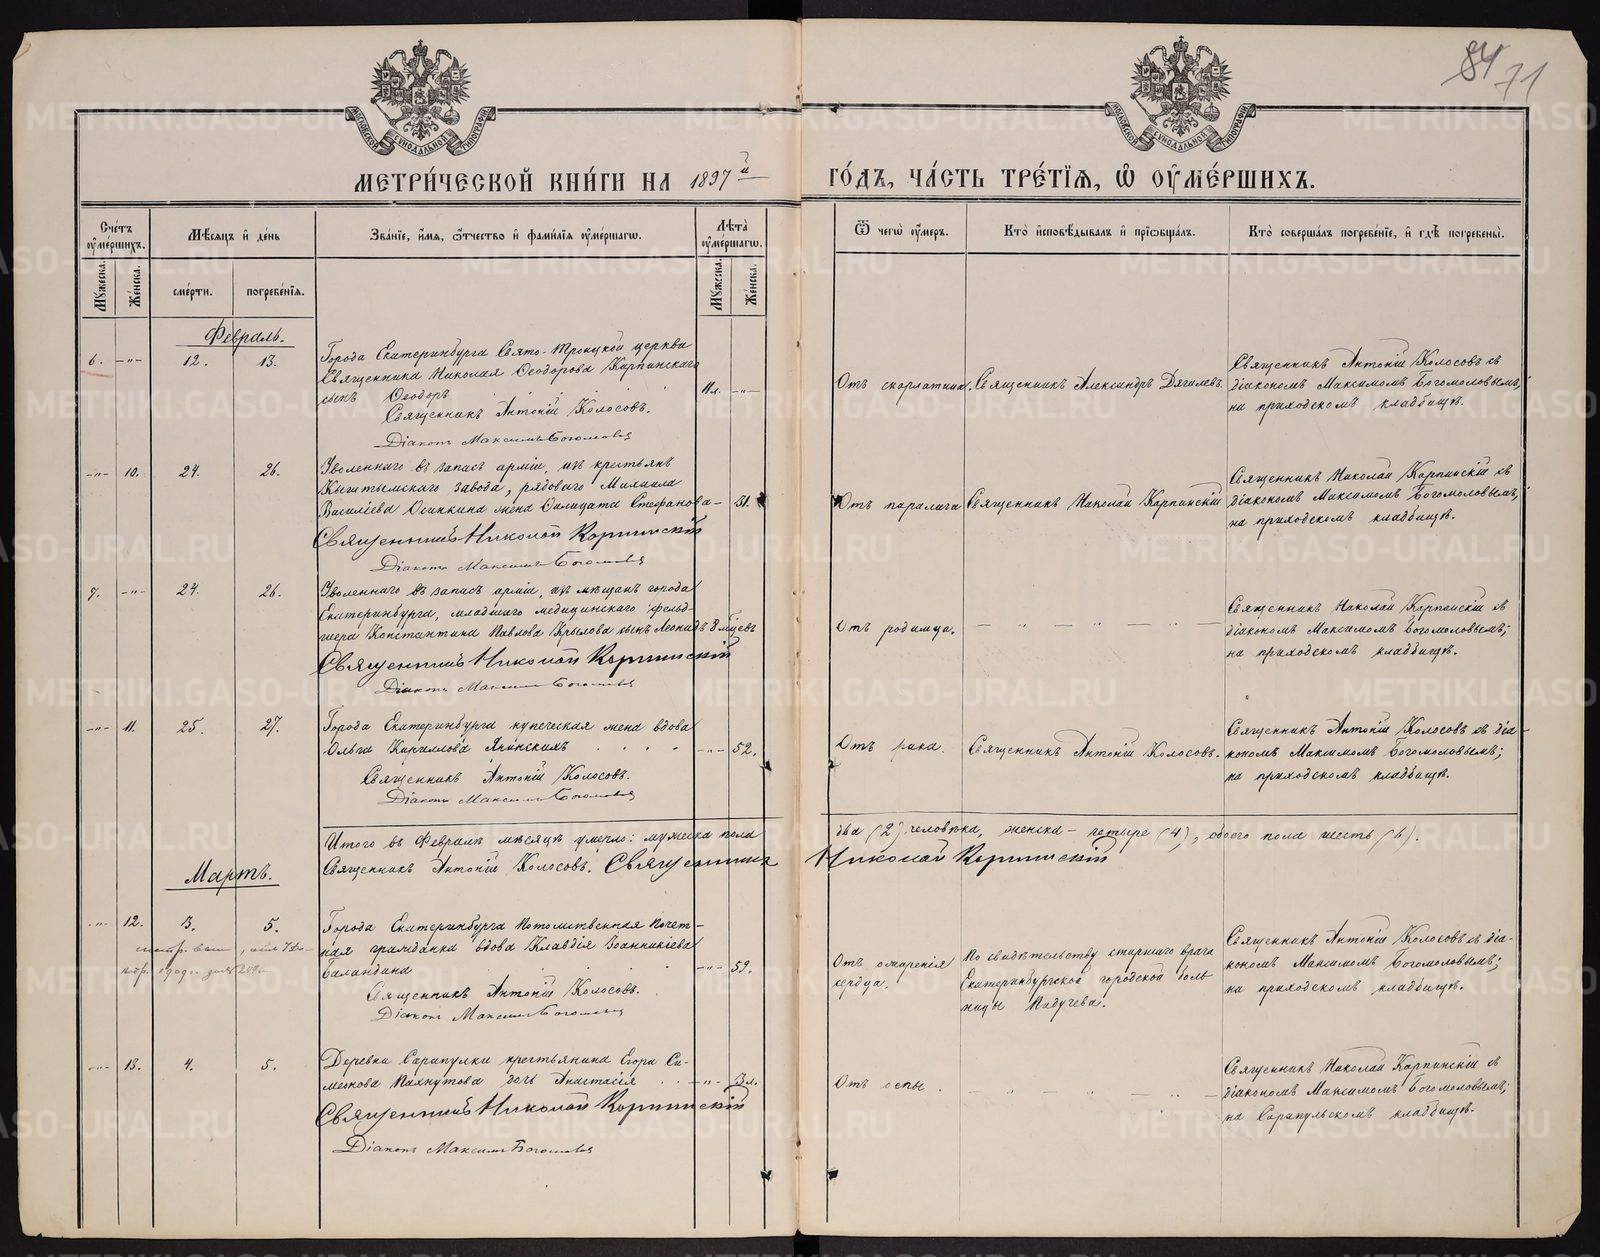 84 71
МОСКОВСКОЙ СѴНОДАЛЬНОЙ ТИПОГРАФІИ
МОСКОВСКОЙ СѴНОДАЛЬНОЙ ТИПОГРАФІИ
МЕТРИ́ЧЕСКОЙ КНИ́ГИ НА 1897й
ГО́ДЪ, ЧА́СТЬ ТРЕ́ТІѦ, Ѡ ОУМЕ́РШИХЪ.
Сче́тъ оуме́ршихъ.
Мѣ́сяцъ и де́нь
Зва́ніе, и́мѧ, о́тчество и фами́лїѧ оуме́ршагѡ.
Лѣ́та оуме́ршагѡ.
Ѿ чегѡ̀ оу́меръ.
Кто̀ и҆сповѣ́дывалъ и҆ прїѡбща́лъ.
Кто̀ соверша́лъ погребе́нїе, и҆ гдѣ̀ погребены̀.
Мꙋ́жеска.
Же́нска.
сме́рти.
погребе́нїѧ.
Мꙋ́жеска.
Же́нска.
Февраль.
6. –"– 12. 13.
Города Екатеринбурга Свято-Троицкой церкви
Священника Николая Ѳеодорова Карпинскаго
сынъ Ѳеодоръ 11л. –"–
Священникъ Антоній Колосовъ.
Діаконъ Максимъ Богомоловъ
Отъ скорлатины.
Священникъ Александръ Дягилевъ.
Священникъ Антоній Колосовъ съ
діакономъ Максимомъ Богомоловымъ;
на приходскомъ кладбищѣ.
–"– 10. 24. 26.
Уволеннаго въ запасъ арміи, изъ крестьянъ
Кыштымскаго завода, рядоваго Михаила
Васильева Осинкина жена Фелицата Стефанова – 51.
Священникъ Николай Карпинскій
Діаконъ Максимъ Богомоловъ
Отъ паралича
Священникъ Николай Карпинскій
Священникъ Николай Карпинскій съ
діакономъ Максимомъ Богомоловымъ;
на приходскомъ кладбищѣ.
7. –"– 24. 26.
Уволеннаго въ запасъ арміи, изъ мѣщанъ города
Екатеринбурга, младшаго медицинскаго фельд-
шера Константина Павлова Крылова сынъ Леонидъ 8 мѣсяцевъ
Священникъ Николай Карпинскій
Діаконъ Максимъ Богомоловъ
Отъ родимца.
— " — " — " —
Священникъ Николай Карпинскій съ
діакономъ Максимомъ Богомоловымъ;
на приходскомъ кладбищѣ.
–"– 11. 25. 27.
Города Екатеринбурга купеческая жена вдова
Ольга Кириллова . . . . –"– 52.
Священникъ Антоній Колосовъ.
Діаконъ Максимъ Богомоловъ
Отъ рака.
Священникъ Антоній Колосовъ.
Священникъ Антоній Колосовъ съ діа-
кономъ Максимомъ Богомоловымъ;
на приходскомъ кладбищѣ.
Итого въ Февралѣ мѣсяцѣ умерло: мужеска пола два (2) человѣка, женска – четыре (4), обоего пола шесть (6).
Священникъ Антоній Колосовъ. Священникъ Николай Карпинскій
Мартъ.
–"– 12. 3. 5.
Города Екатеринбурга Потомственная Почет-
ная гражданка вдова Клавдія Іоанникіева
Баландина –"– 59.
Священникъ Антоній Колосовъ.
Діаконъ Максимъ Богомоловъ
Отъ ожирѣнія
сердца.
По свидѣтельству старшаго врача
Екатеринбургской городской боль-
ницы Падучева.
Священникъ Антоній Колосовъ съ діа-
кономъ Максимомъ Богомоловымъ;
на приходскомъ кладбищѣ.
–"– 13. 4. 5.
Деревни Сарапулки крестьянина Егора Си-
меонова Пахнутова дочь Анастасія . . –"– 3 л.
Священникъ Николай Карпинскій
Діаконъ Максимъ Богомоловъ
Отъ оспы.
— " — " —
Священникъ Николай Карпинскій съ
діакономъ Максимомъ Богомоловымъ;
на Сарапульскомъ кладбищѣ.
METRIKI.GASO-URAL.RU